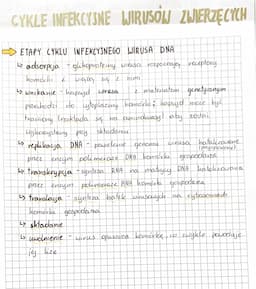 CYKLE INFEKCYJNE WIRUSÓW ZWIERZĘCYCH
ETAPY CYKLU INFEKCYJNEGO WIRUSA DNA
↳ adsorpcja - glikoproteiny wirusa rozpoznają receptory
komórki i wiążą się z nim
↳ wnikanie - kapsyd wirusa z materiałem genetycznym
przechodzi do cytoplazmy komórki; kapsyd może być
trawiony
wykorzystany przy składaniu
↳ replikacja DNA - powielenie genomu wirusa katalizowane
przez enzym polimerazę DNA komórki gospodarza
↳ transkrypcja - synteza RNA na matrycy DNA katalizowana
przez enzym polimerazę RNA komórki gospodarza
↳ translacja - synteza białek wirusowych na rybosomach
komórki gospodarza
↳ składanie
↳ uwolnienie - wirus opuszcza komórkę, co zwykle powoduje
jej lizę